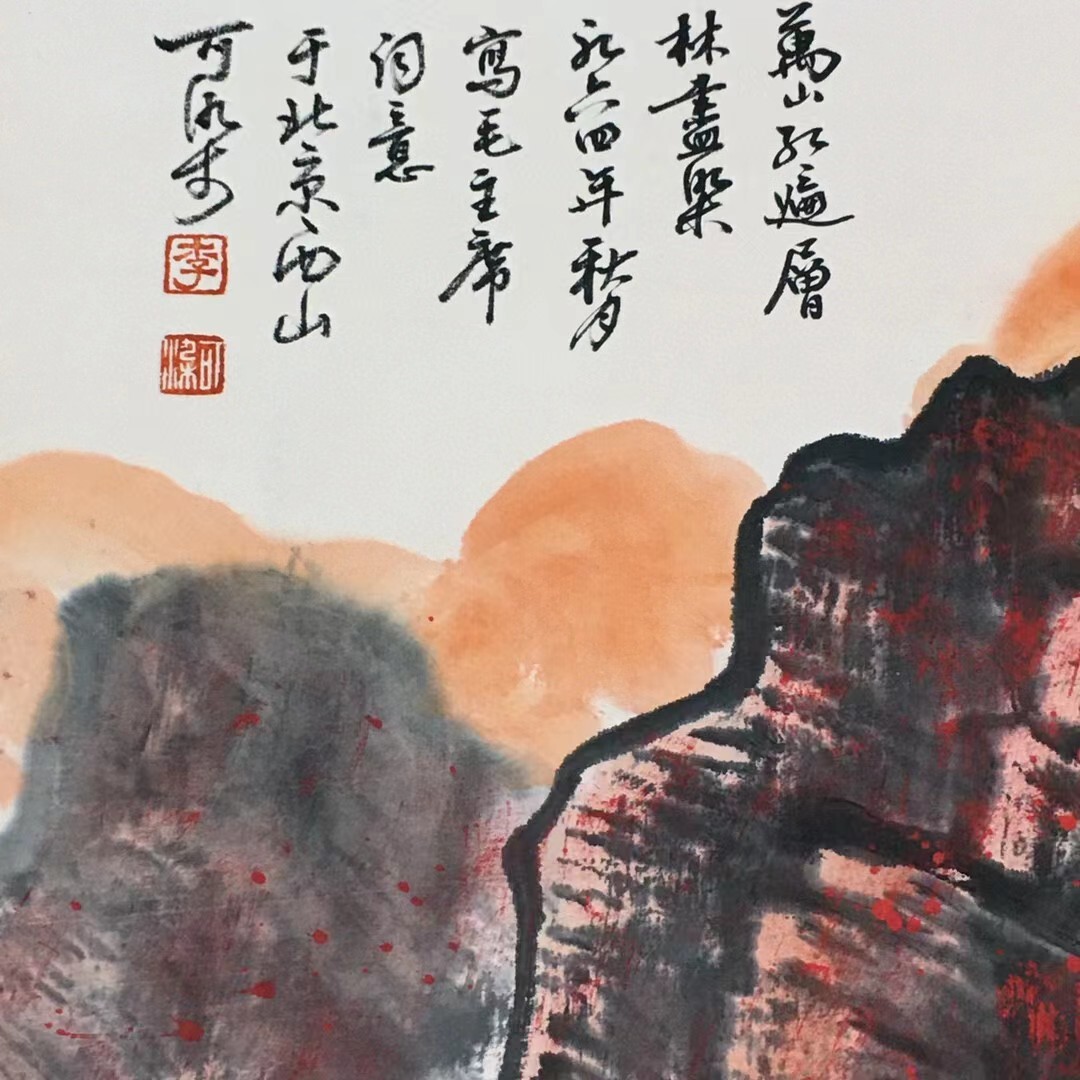 萬山紅遍層
林盡染
一九六四年秋月
寫毛主席
詞意
于北京西山
可染
李
可染